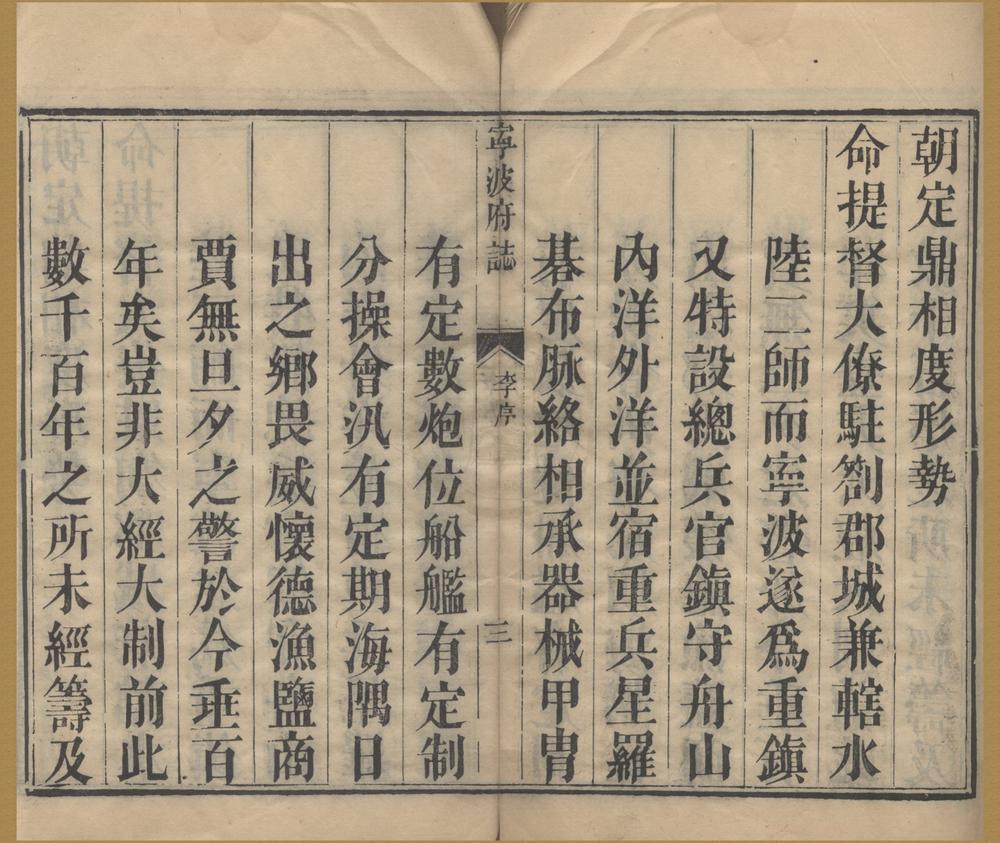 朝定鼎相度形勢
命提督大僚駐劄郡城兼轄水
陸三師而寧波遂爲重鎮
又特設總兵官鎮守舟山
內洋外洋並宿重兵星羅
碁布脉絡相承器械甲冑
寧波府誌 李序 三
有定數炮位船艦有定制
分操會汛有定期海隅日
出之鄉畏威懷德漁鹽商
賈無旦夕之警於今垂百
年矣豈非大經大制前此
數千百年之所未經籌及